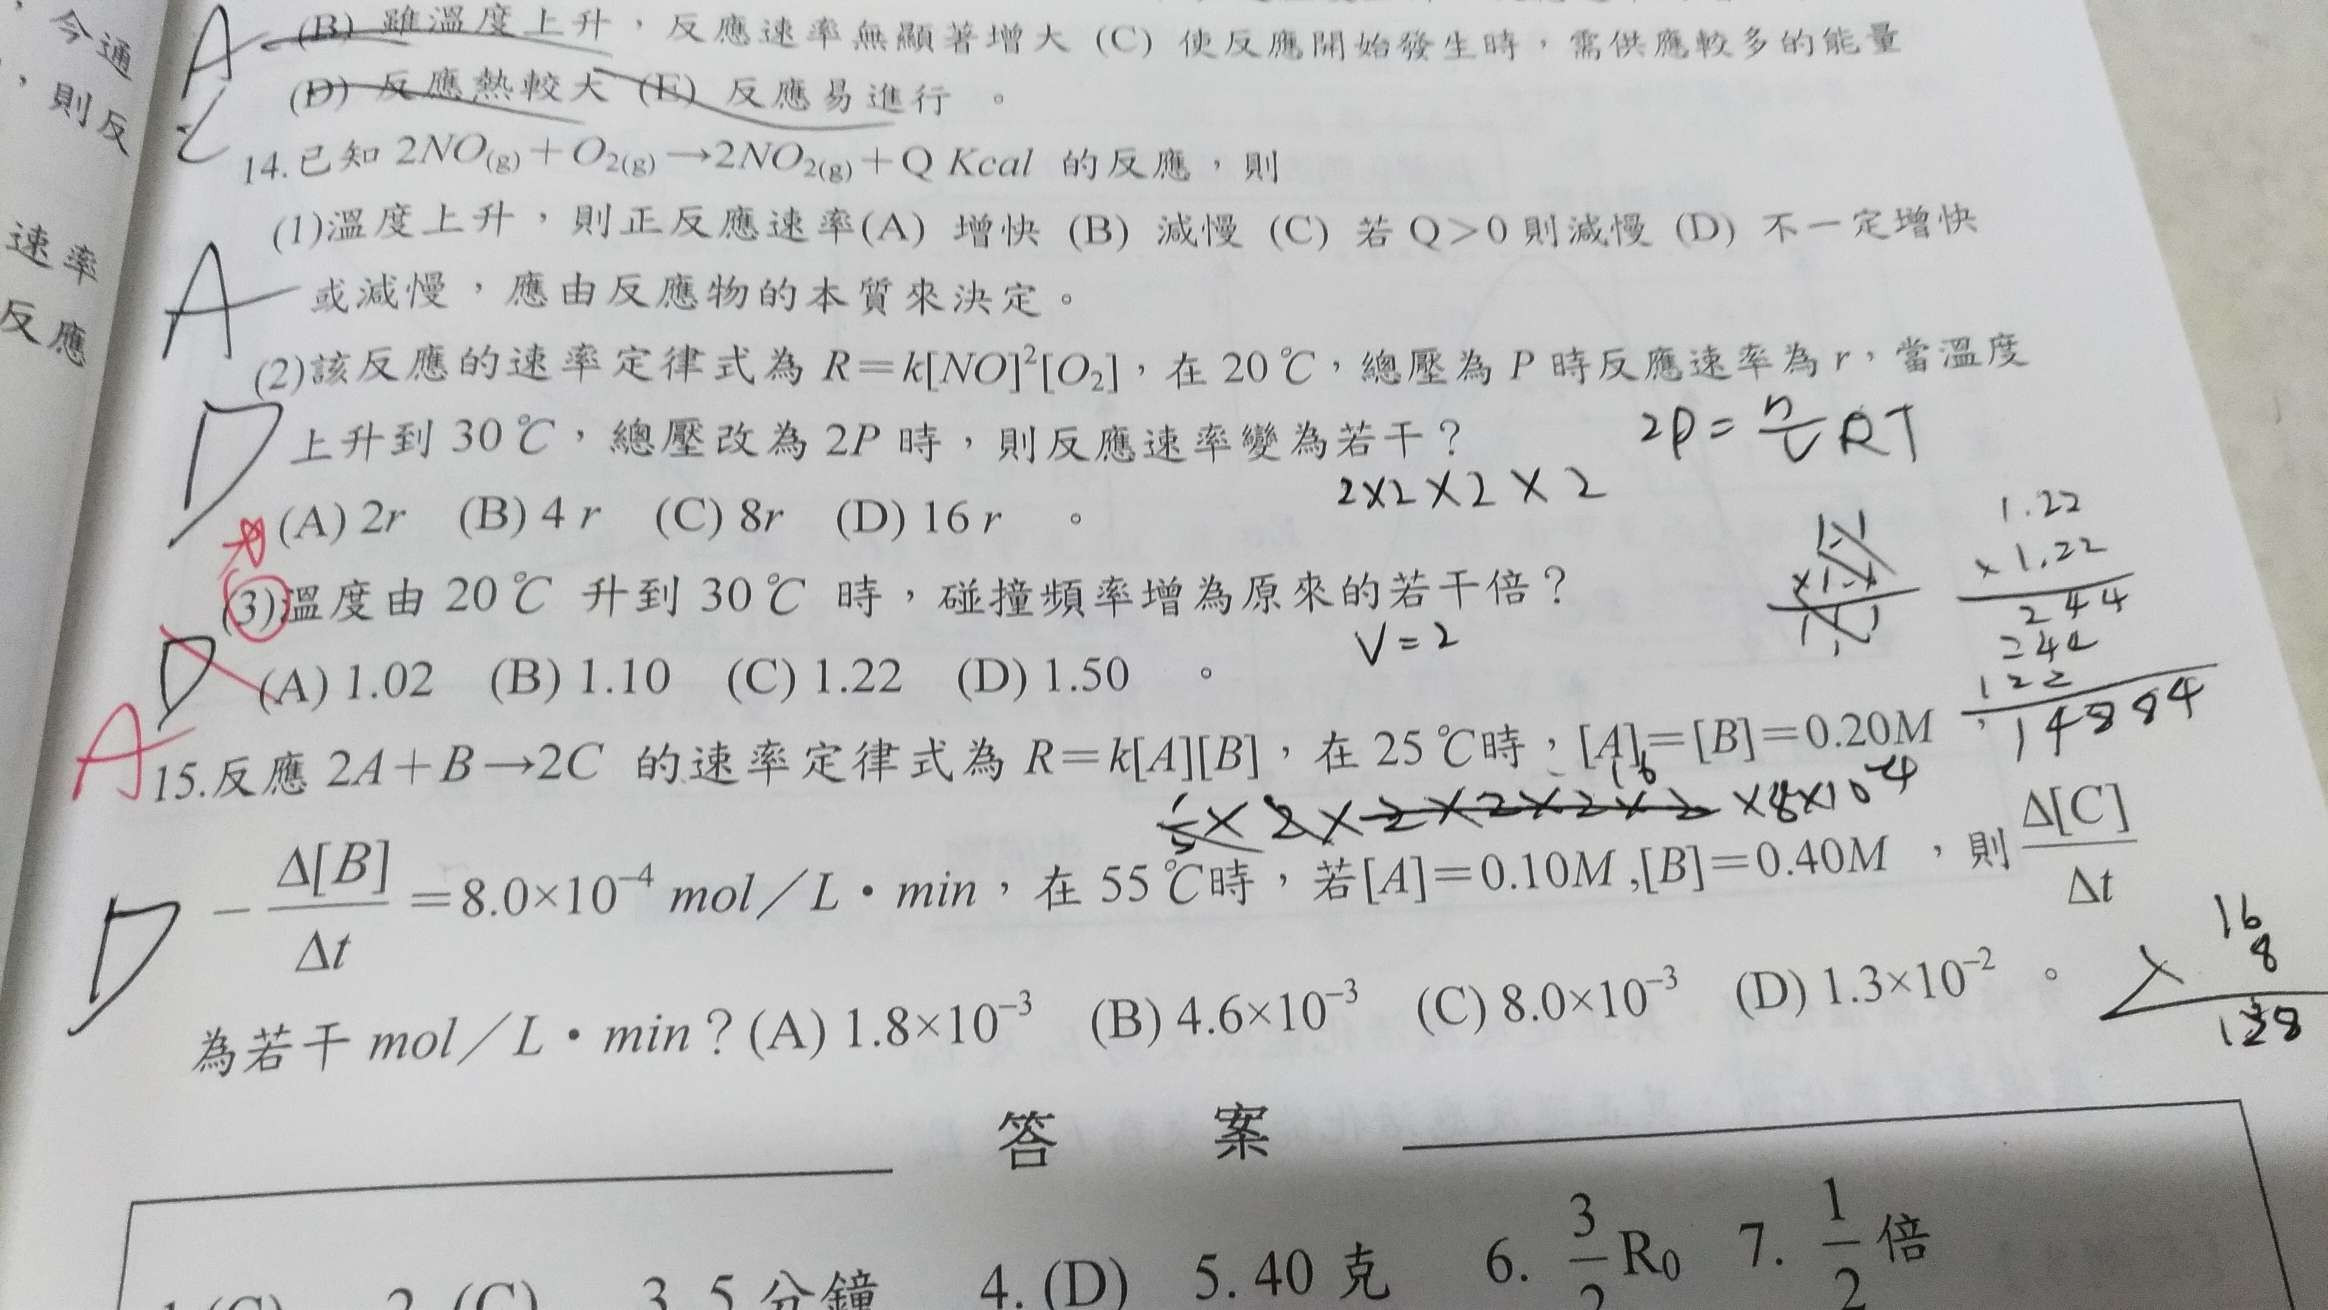 今通
，則反
速率
反應
A
(B) 雖溫度上升，反應速率無顯著增大 (C) 使反應開始發生時，需供應較多的能量
(D) 反應熱較大 (E) 反應易進行 。
14.已知 2NO(g)＋O2(g)→2NO2(g)＋Q Kcal 的反應，則
(1)溫度上升，則正反應速率(A) 增快 (B) 減慢 (C) 若 Q＞0 則減慢 (D) 不一定增快
A 或減慢，應由反應物的本質來決定。
(2)該反應的速率定律式為 R＝k[NO]²[O2]，在 20℃，總壓為 P 時反應速率為 r，當溫度
D 上升到 30℃，總壓改為 2P 時，則反應速率變為若干？ 2P = n/V RT
2×2×2×2
(A) 2r (B) 4 r (C) 8r (D) 16 r 。
1.22
×1.22
(3)溫度由 20℃ 升到 30℃ 時，碰撞頻率增為原來的若干倍？
V=2
244
244
122
14884
D (A) 1.02 (B) 1.10 (C) 1.22 (D) 1.50 。
A
15.反應 2A＋B→2C 的速率定律式為 R＝k[A][B]，在 25℃時，[A]＝[B]＝0.20M，
16
×8×10⁻⁴
D －Δ[B]/Δt＝8.0×10⁻⁴ mol／L‧min，在 55℃時，若[A]＝0.10M ,[B]＝0.40M ，則 Δ[C]/Δt
16
× 8
128
為若干 mol／L‧min？(A) 1.8×10⁻³ (B) 4.6×10⁻³ (C) 8.0×10⁻³ (D) 1.3×10⁻² 。
答 案
2. (C) 3. 5 分鐘 4. (D) 5. 40 克 6. 3/2 R0 7. 1/2 倍